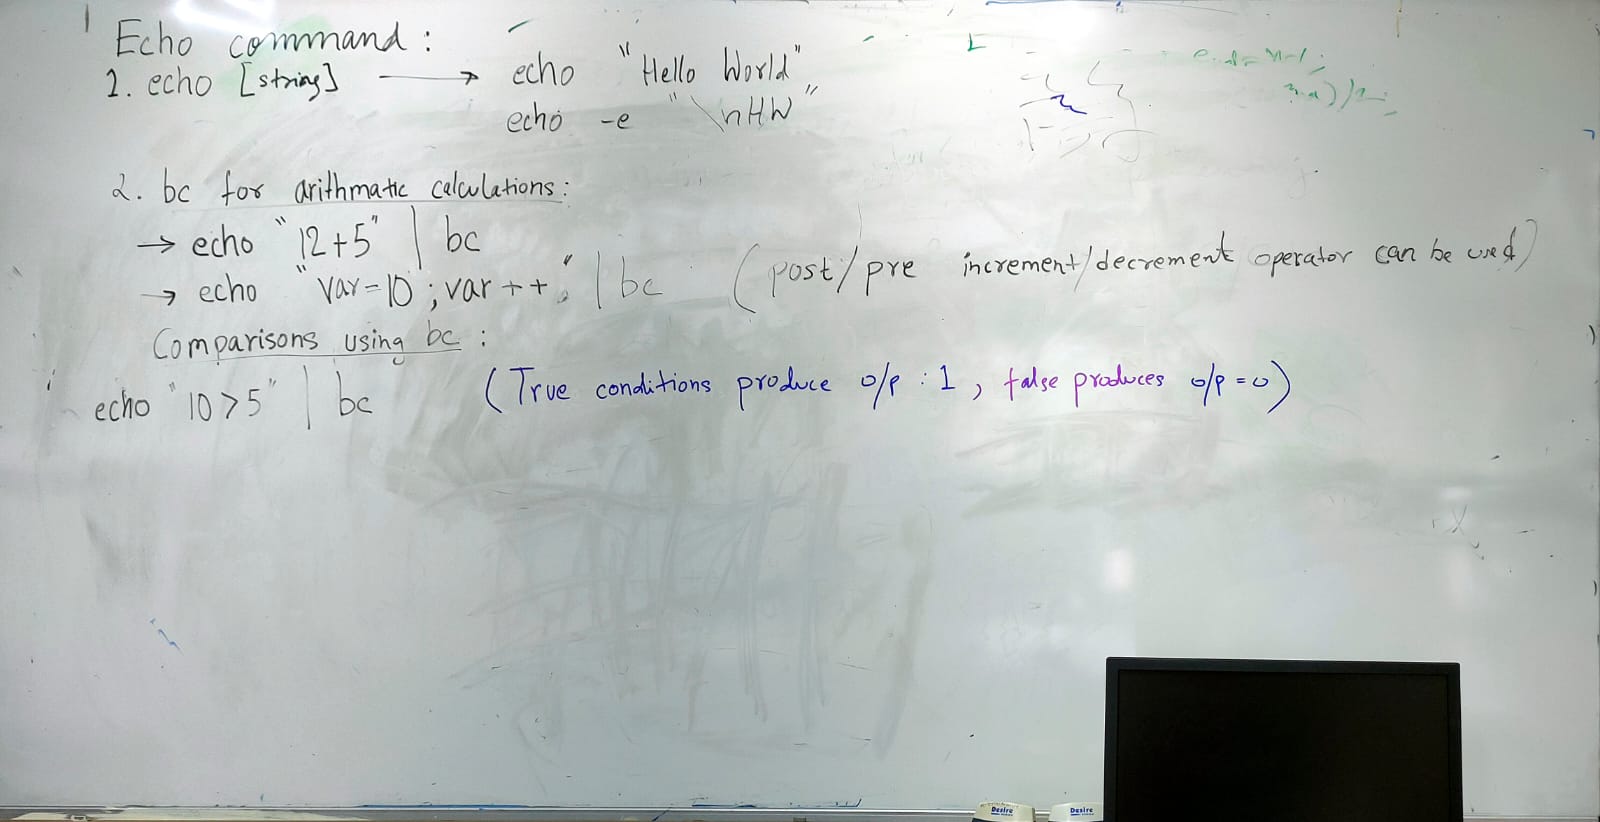 Echo command :
1. echo [string] → echo "Hello World"
echo -e "\nHW"
2. bc for arithmatic calculations :
→ echo "12+5" | bc
→ echo "var=10 ; var++" | bc (post/pre increment/decrement operator can be used)
Comparisons using bc :
echo "10>5" | bc (True conditions produce o/p : 1 , false produces o/p = 0)
Desire
Desire